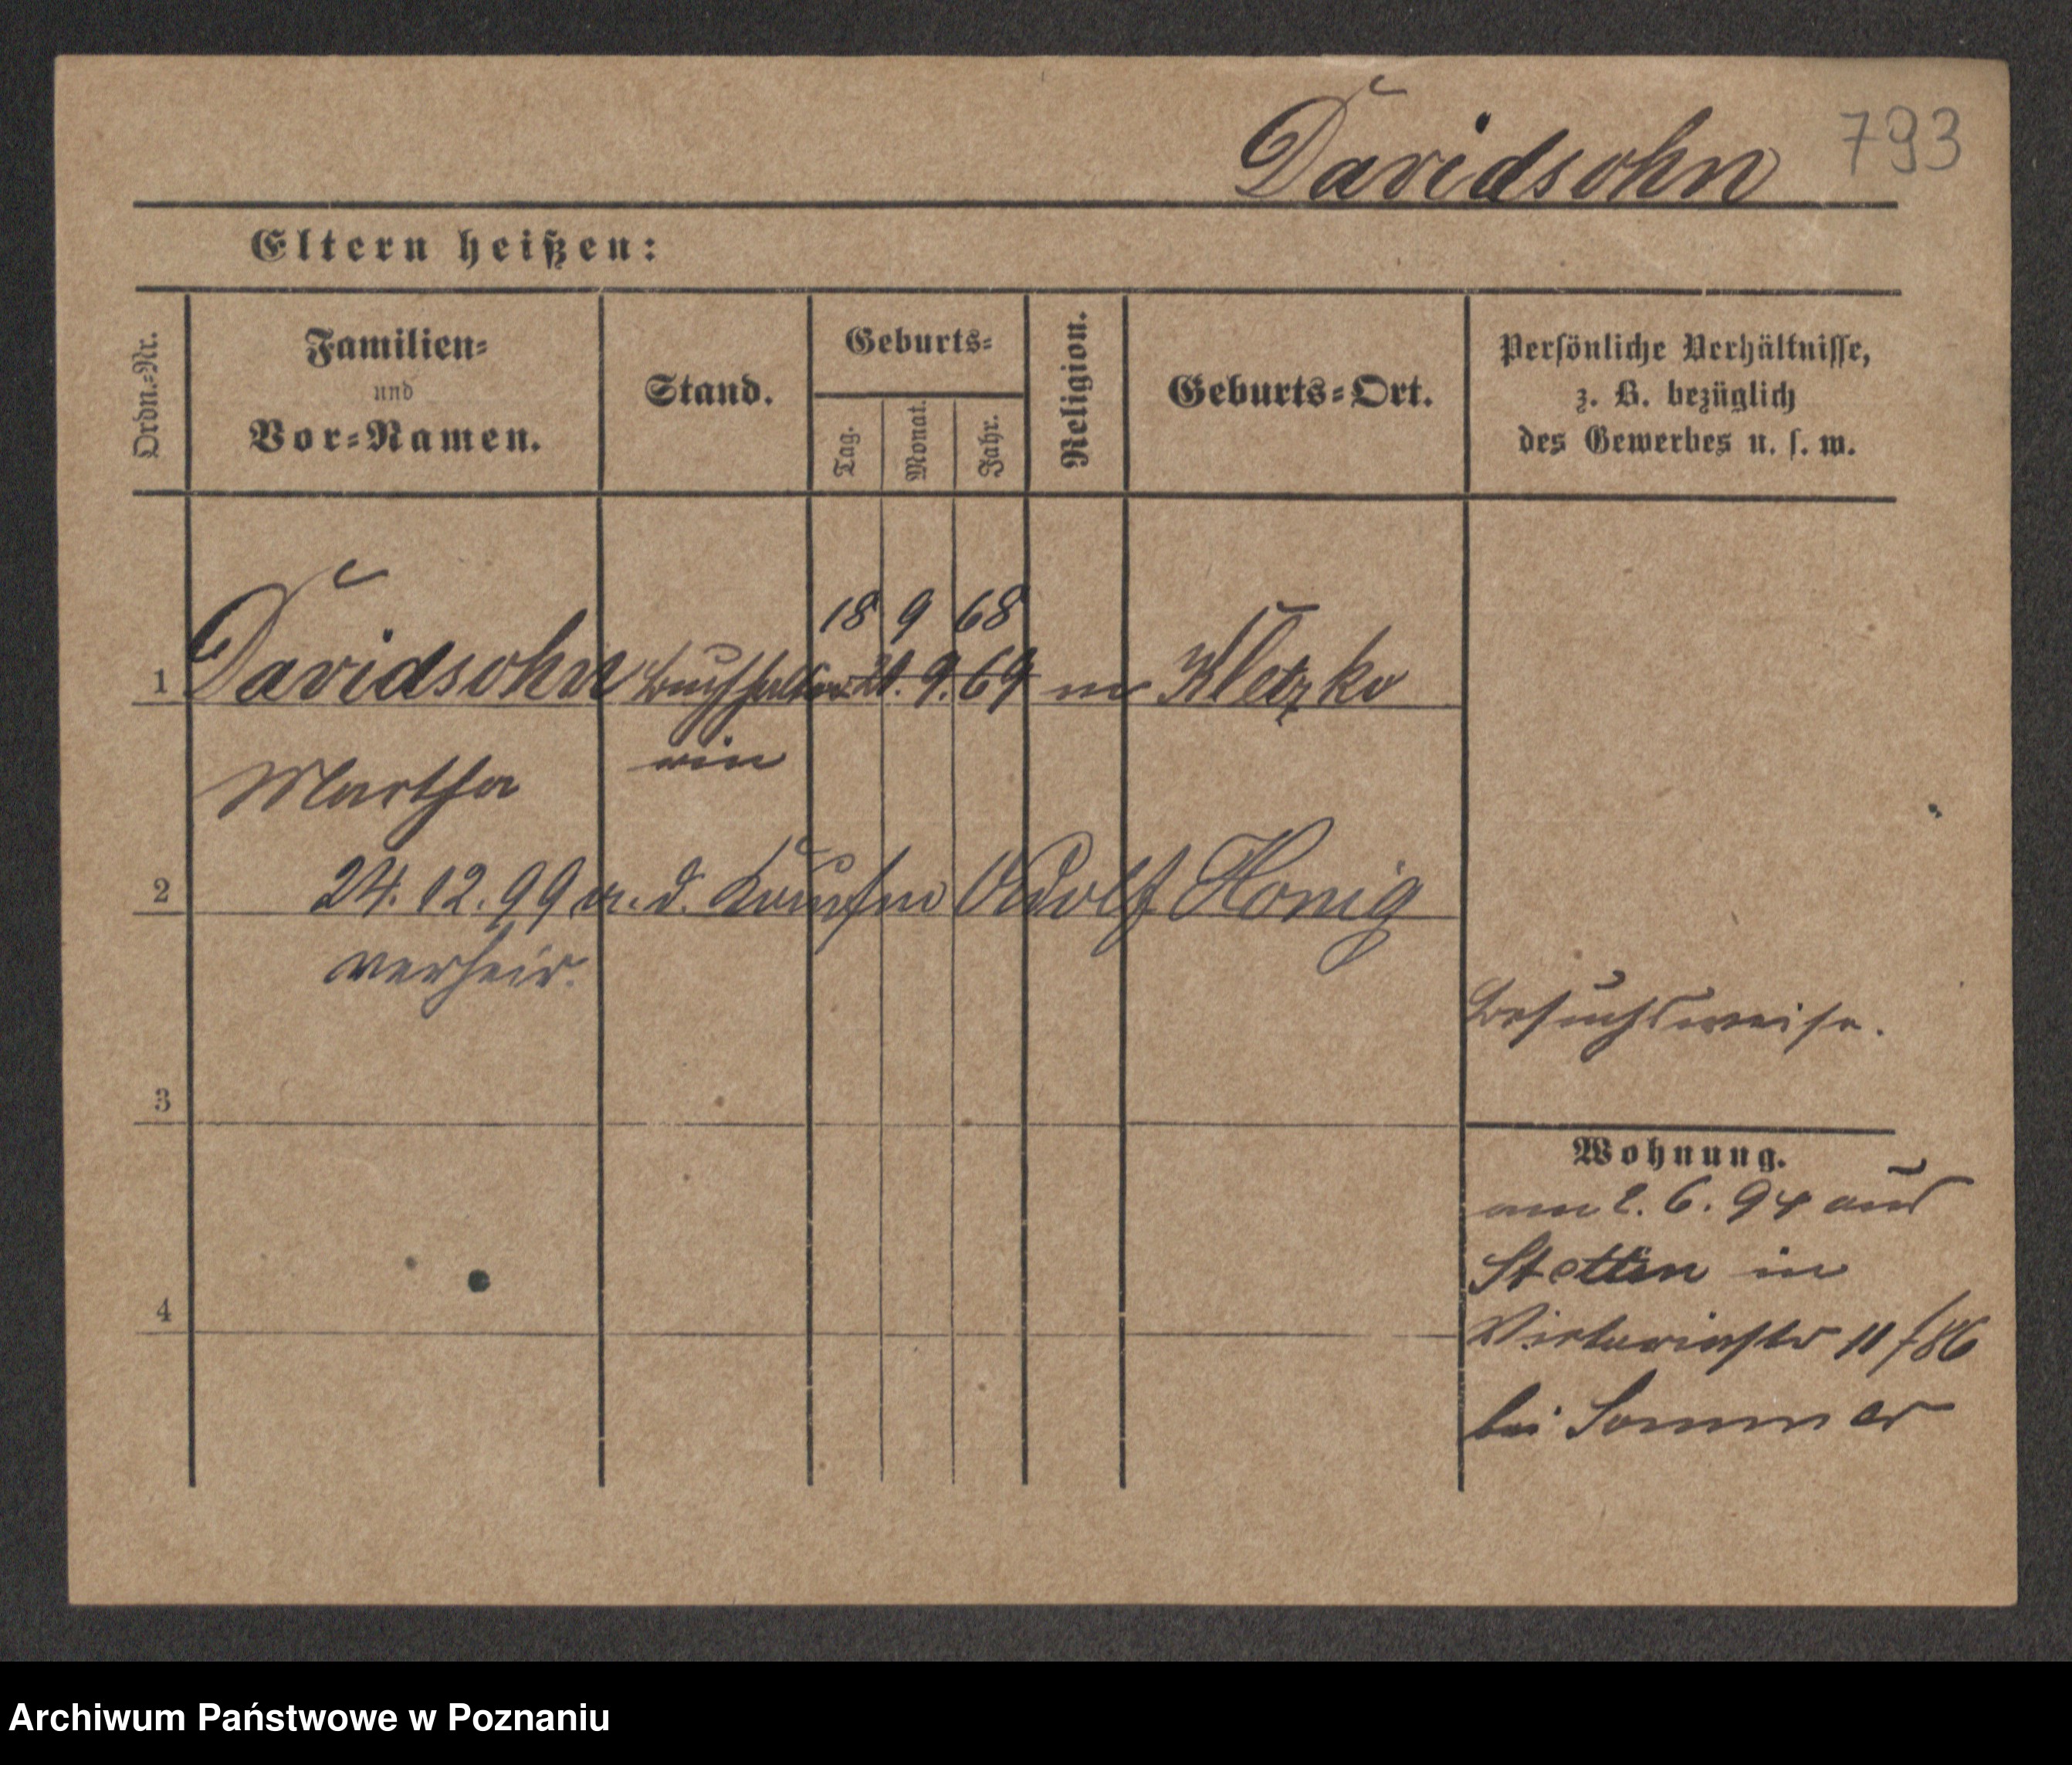 Davidsohn 793
Eltern heißen:
Ordn.=Nr.
Familien=
und
Vor=Namen.
Stand.
Geburts=
Tag. Monat. Jahr.
Religion.
Geburts=Ort.
Persönliche Verhältnisse,
z. B. bezüglich
des Gewerbes u. s. w.
18 9 68
1 Davidsohn Buchhalte 21. 9. 69 m Kletzko
Martha rin
2 24. 12. 99 m. d. Kaufm Adolf Honig
verheir.
Besuchsweise.
3
Wohnung.
am 2. 6. 94 aus
Stettin in
4
Victoriastr 11/86
bei Sommer
Archiwum Państwowe w Poznaniu